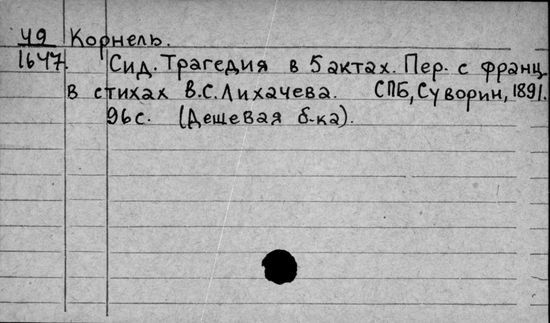 49 Корнель.
1647. Сид. Трагедия в 5 актах. Пер. с франц.
в стихах В.С. Лихачева. СПБ, Суворин, 1891.
96 с. (Дешевая б-ка).